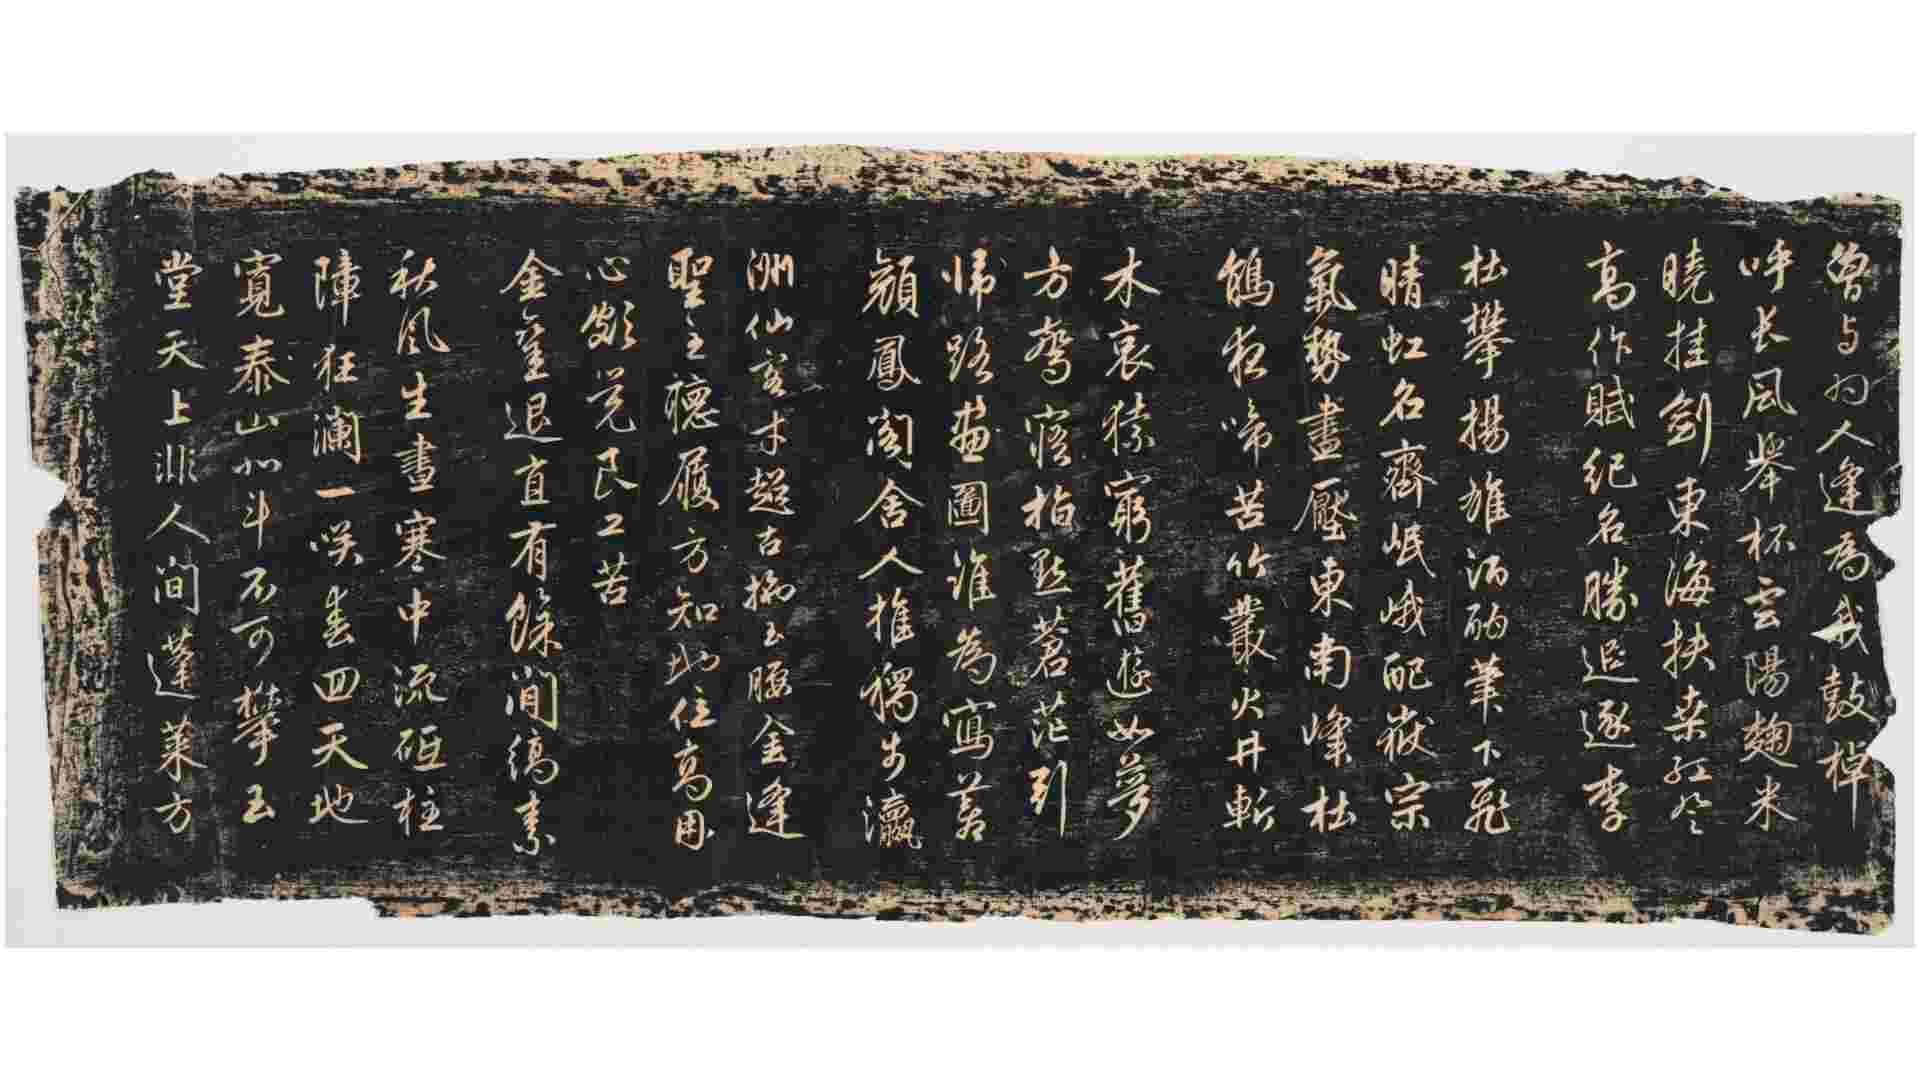 曾与如人逢為我鼓棹
呼长風舉杯雲陽麹米
曉挂劍東海扶桒紅登
高作賦紀名勝追逐李
杜攀揚雄酒酣筆下飛
晴虹名齊岷峨配嶽宗
氣勢晝壓東南峰杜
鵑夜啼苦竹叢火井斬
木哀猿窮舊遊如夢
方驚寤指點蒼茫引
帰路畫圖誰為寫蒼
顔鳳閣舍人推獨步瀛
洲仙客才超古拖玉腰金逢
聖主德履方知地位高用
心頗覺良工苦
金鑾退直有餘閒縞素
秋風生晝寒中流砥柱
障狂瀾一笑春回天地
寬泰山北斗不可攀玉
堂天上非人间蓬萊方